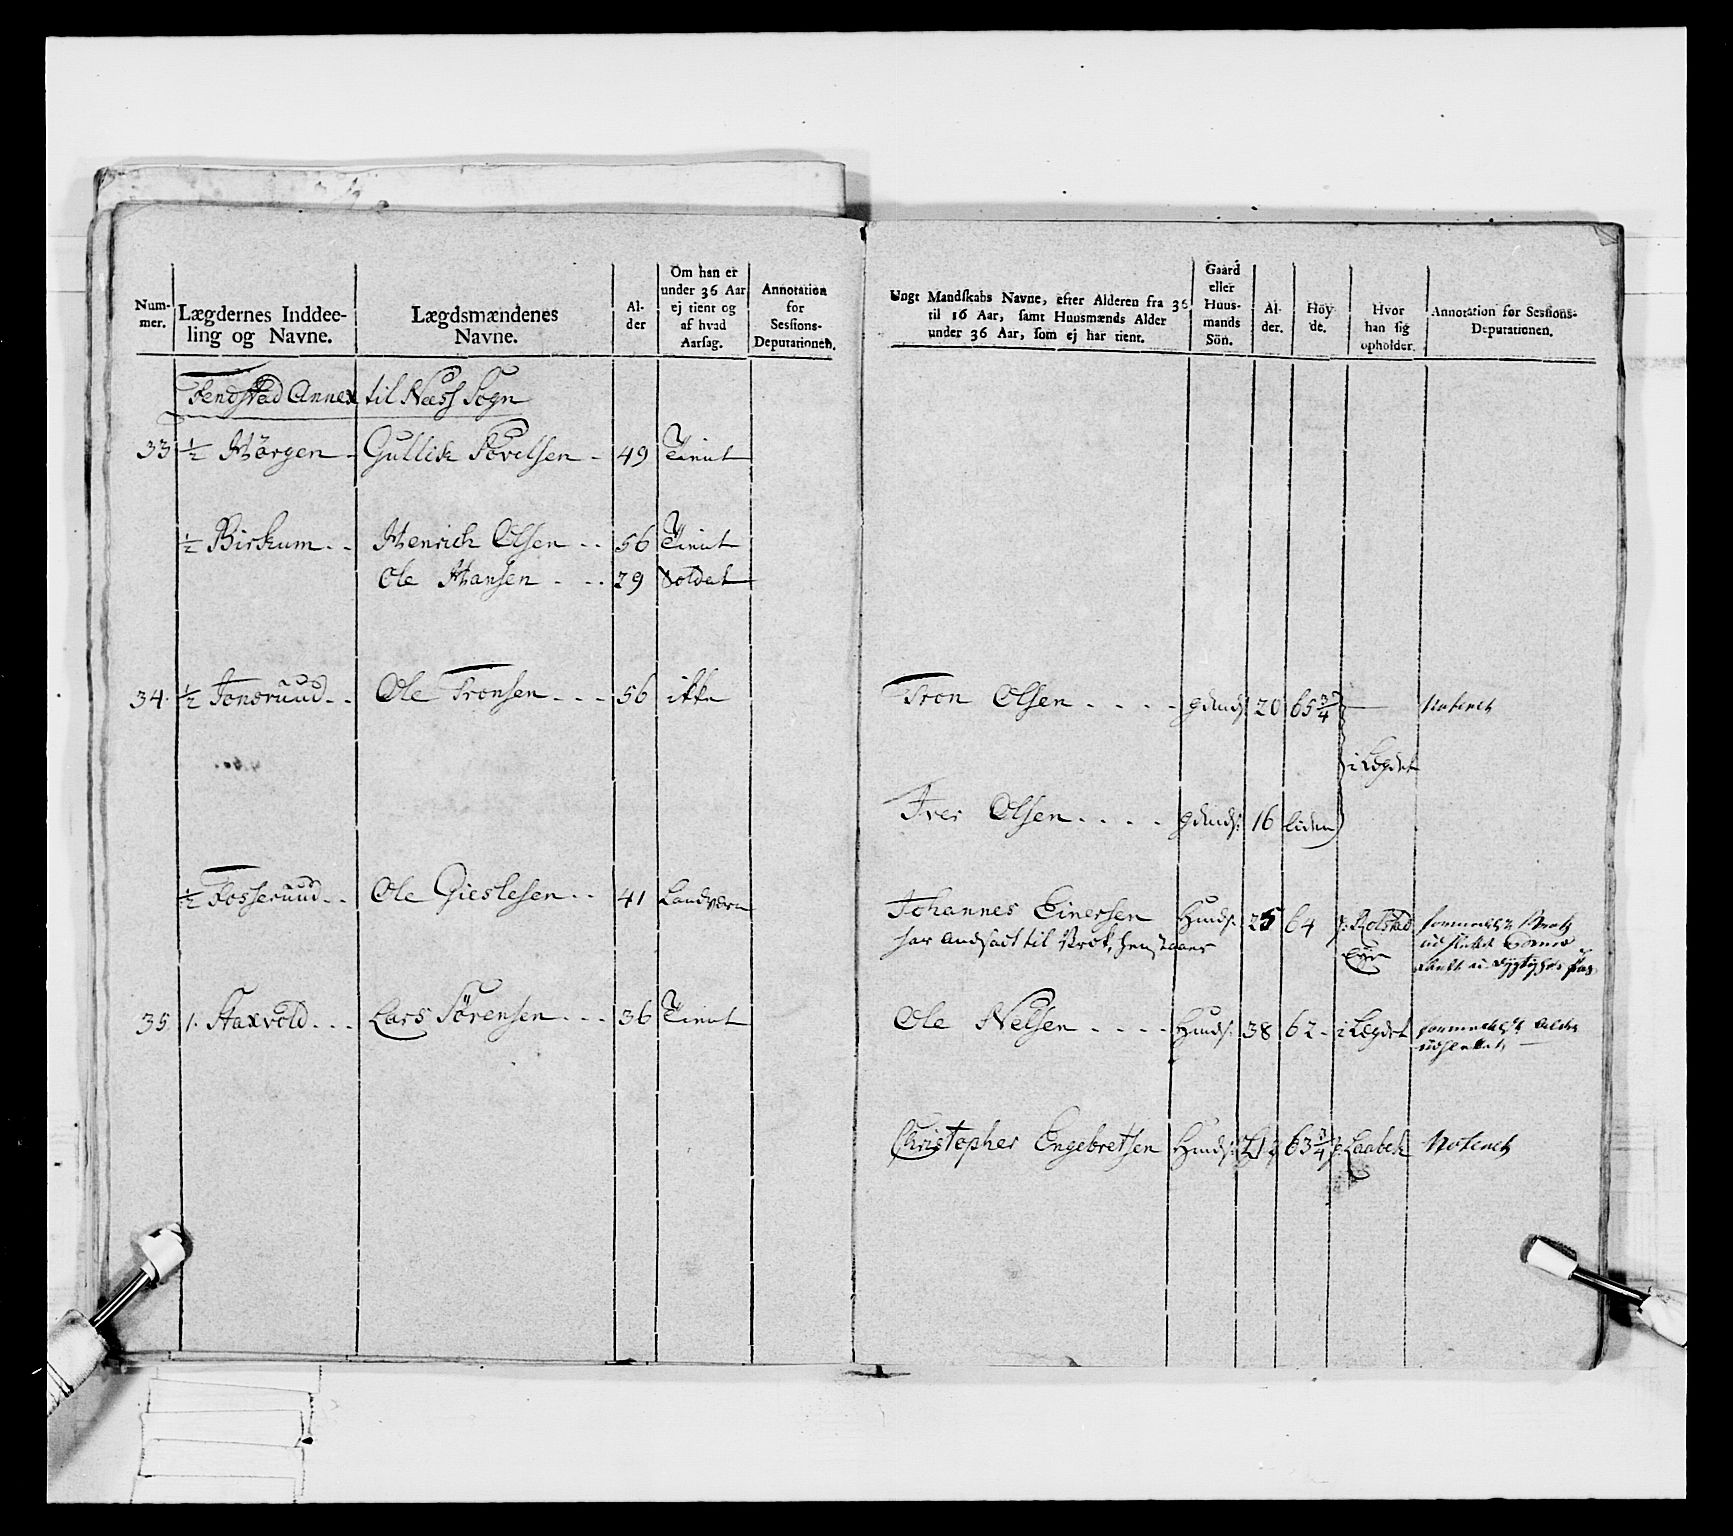 Num-
mer.
Lægdernes Inddee-
ling og Navne.
Lægdsmændenes
Navne.
Al-
der
Om han er
under 36 Aar
ej tient og
af hvad
Aarsag.
Annotation
for
Sessions-
Deputationen.
Fendstad Annex til Næss Sogn
33 ½ Hörgen - Gullich Povelsen - 49 Tient
½ Birkum - - Henrich Olsen - - 56 Tient
Ole Hansen - - - 29 Soldat
34. ½ Tonsruud - - Ole Tronsen - - - 56 ikke
½ Fosseruud - - Ole Gieslesen - - 41 Landværn
35 1. Haxvold - - - Lars Sörensen - - - 36 Tient
Ungt Mandskabs Navne, efter Alderen fra 36
til 16 Aar, samt Huusmænds Alder
under 36 Aar, som ej har tient.
Gaard
eller
Huus-
mands
Sön.
Al-
der.
Höy
de.
Hvor
han sig
opholder.
Annotation for Sessions-
Deputationen.
Tron Olsen - - - - gdmds. 20 65¾ Noteret
i Lægdet
Iver Olsen - - - - gdmds. 16 liden
Johannes Einersen Huuds. 25 64 p. Rolstad
har andsadt til
Eyer
Ole Nelsen - - - - Huuds. 38 62 - i Lægdet
Christopher Engebretsen Huuds. 21 63¾ p. Laabek Noteret